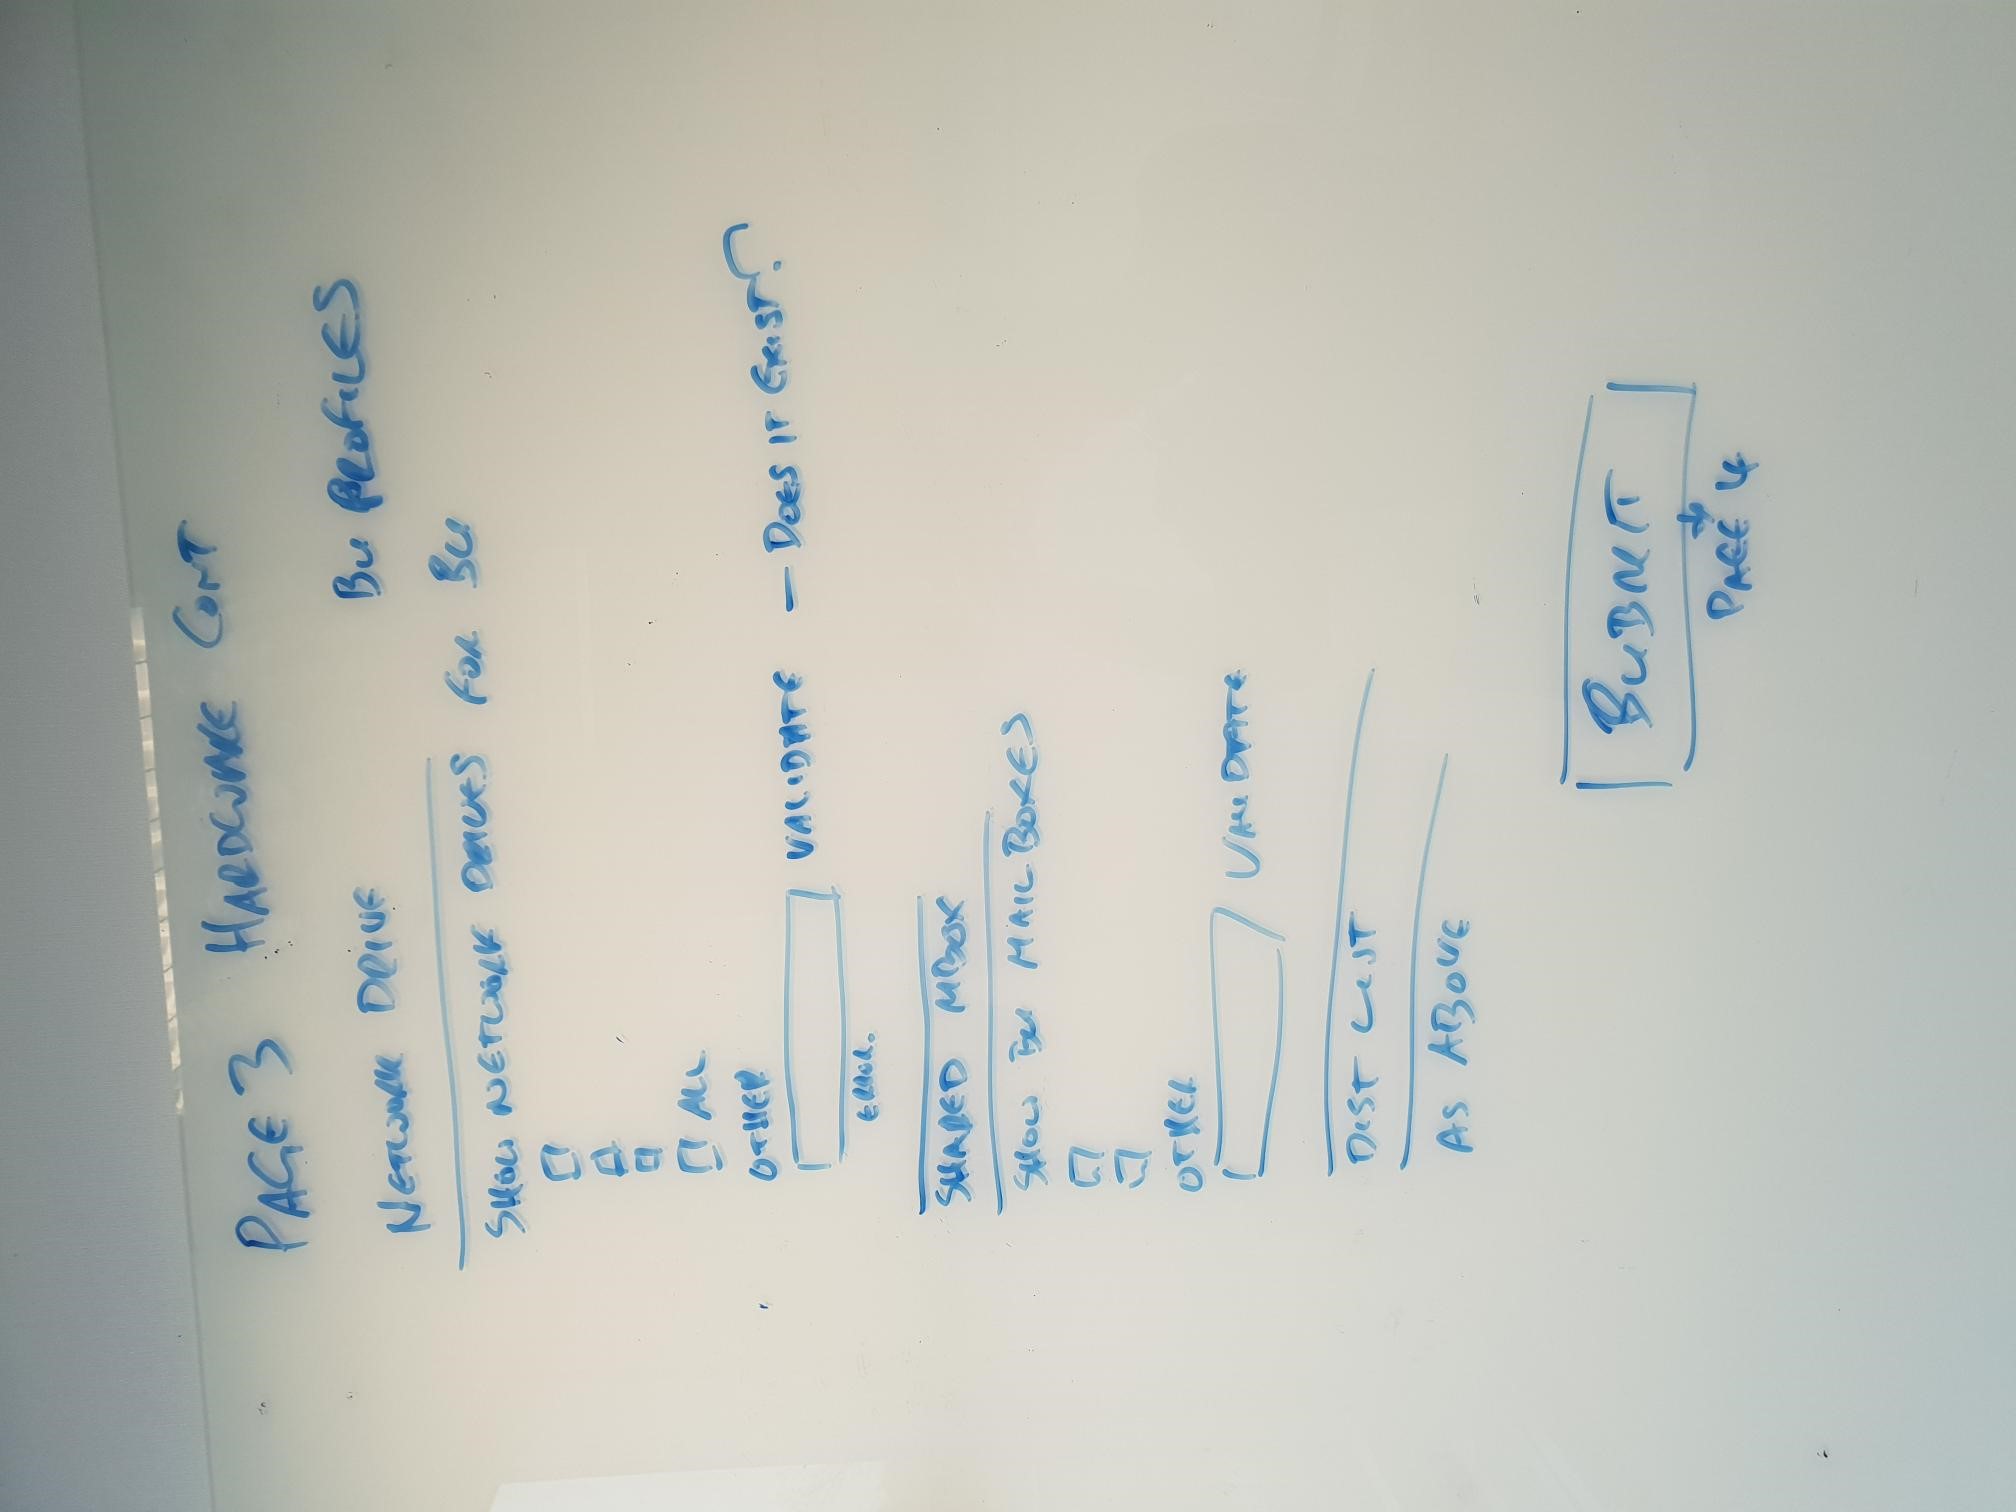 PAGE 3 HARDWARE CONT
NETWORK DRIVE
BU PROFILES
SHOW NETWORK DRIVES FOR BU
ALL
OTHER
VALIDATE — DOES IT EXIST?
ERROR.
SHARED MBOX
SHOW BU MAIL BOXES
OTHER
VALIDATE
DIST LIST
AS ABOVE
BUBMIT
PAGE 4